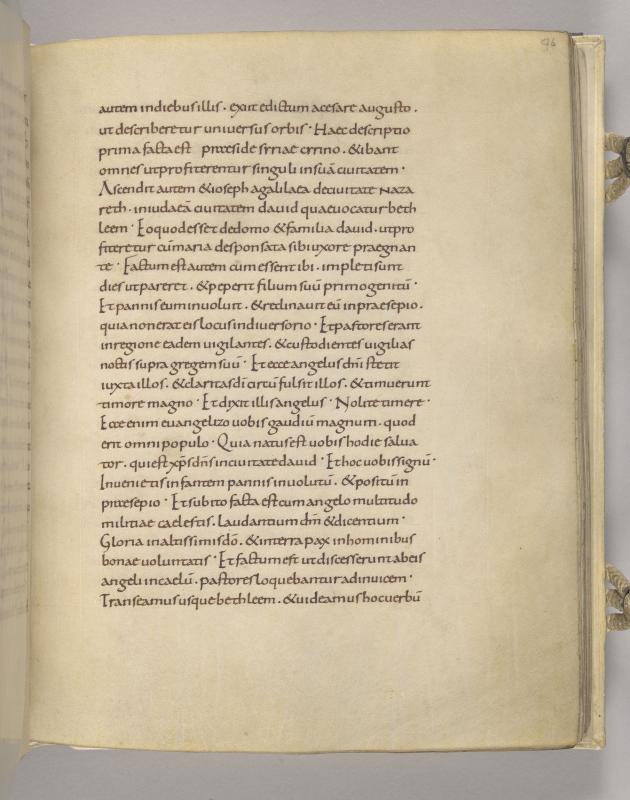 96
autem indiebus illis. exiit edictum acesare augusto.
ut describeretur universus orbis. Haec descriptio
prima facta est praeside syriae cyrino. & ibant
omnes ut profiterentur singuli insuā civitatem.
Ascendit autem & ioseph agalilaea decivitate naza
reth. iniudaeā civitatem david quae vocatur beth
leem. Eo quod esset dedomo & familia david. ut pro
fiteretur cū maria desponsata sibi uxore praegnan
te. Factum est autem cum essent ibi. impleti sunt
dies ut pareret. & peperit filium suū primogenitū.
Et pannis eum involvit. & reclinavit eū inpraesepio.
quia non erat eis locus indiversorio. Et pastores erant
inregione eadem vigilantes. & custodientes vigilias
noctis supra gregem suū. Et ecce angelus dn̄i stetit
iuxta illos. & claritas dī circū fulsit illos. & timuerunt
timore magno. Et dixit illis angelus. Nolite timere.
Ecce enim evangelizo vobis gaudiū magnum. quod
erit omni populo. Quia natus est vobis hodie salva
tor. qui est xp̄s dn̄s incivitate david. Et hoc vobis signū.
Invenietis infantem pannis involutū. & positū in
praesepio. Et subito facta est cum angelo multitudo
militiae caelestis. laudantium dm̄ & dicentium.
Gloria inaltissimis dō. & interra pax inhominibus
bonae voluntatis. Et factum est ut discesserunt abeis
angeli incaelū. pastores loquebantur adinvicem.
Transeamus usque bethleem. & videamus hoc verbū